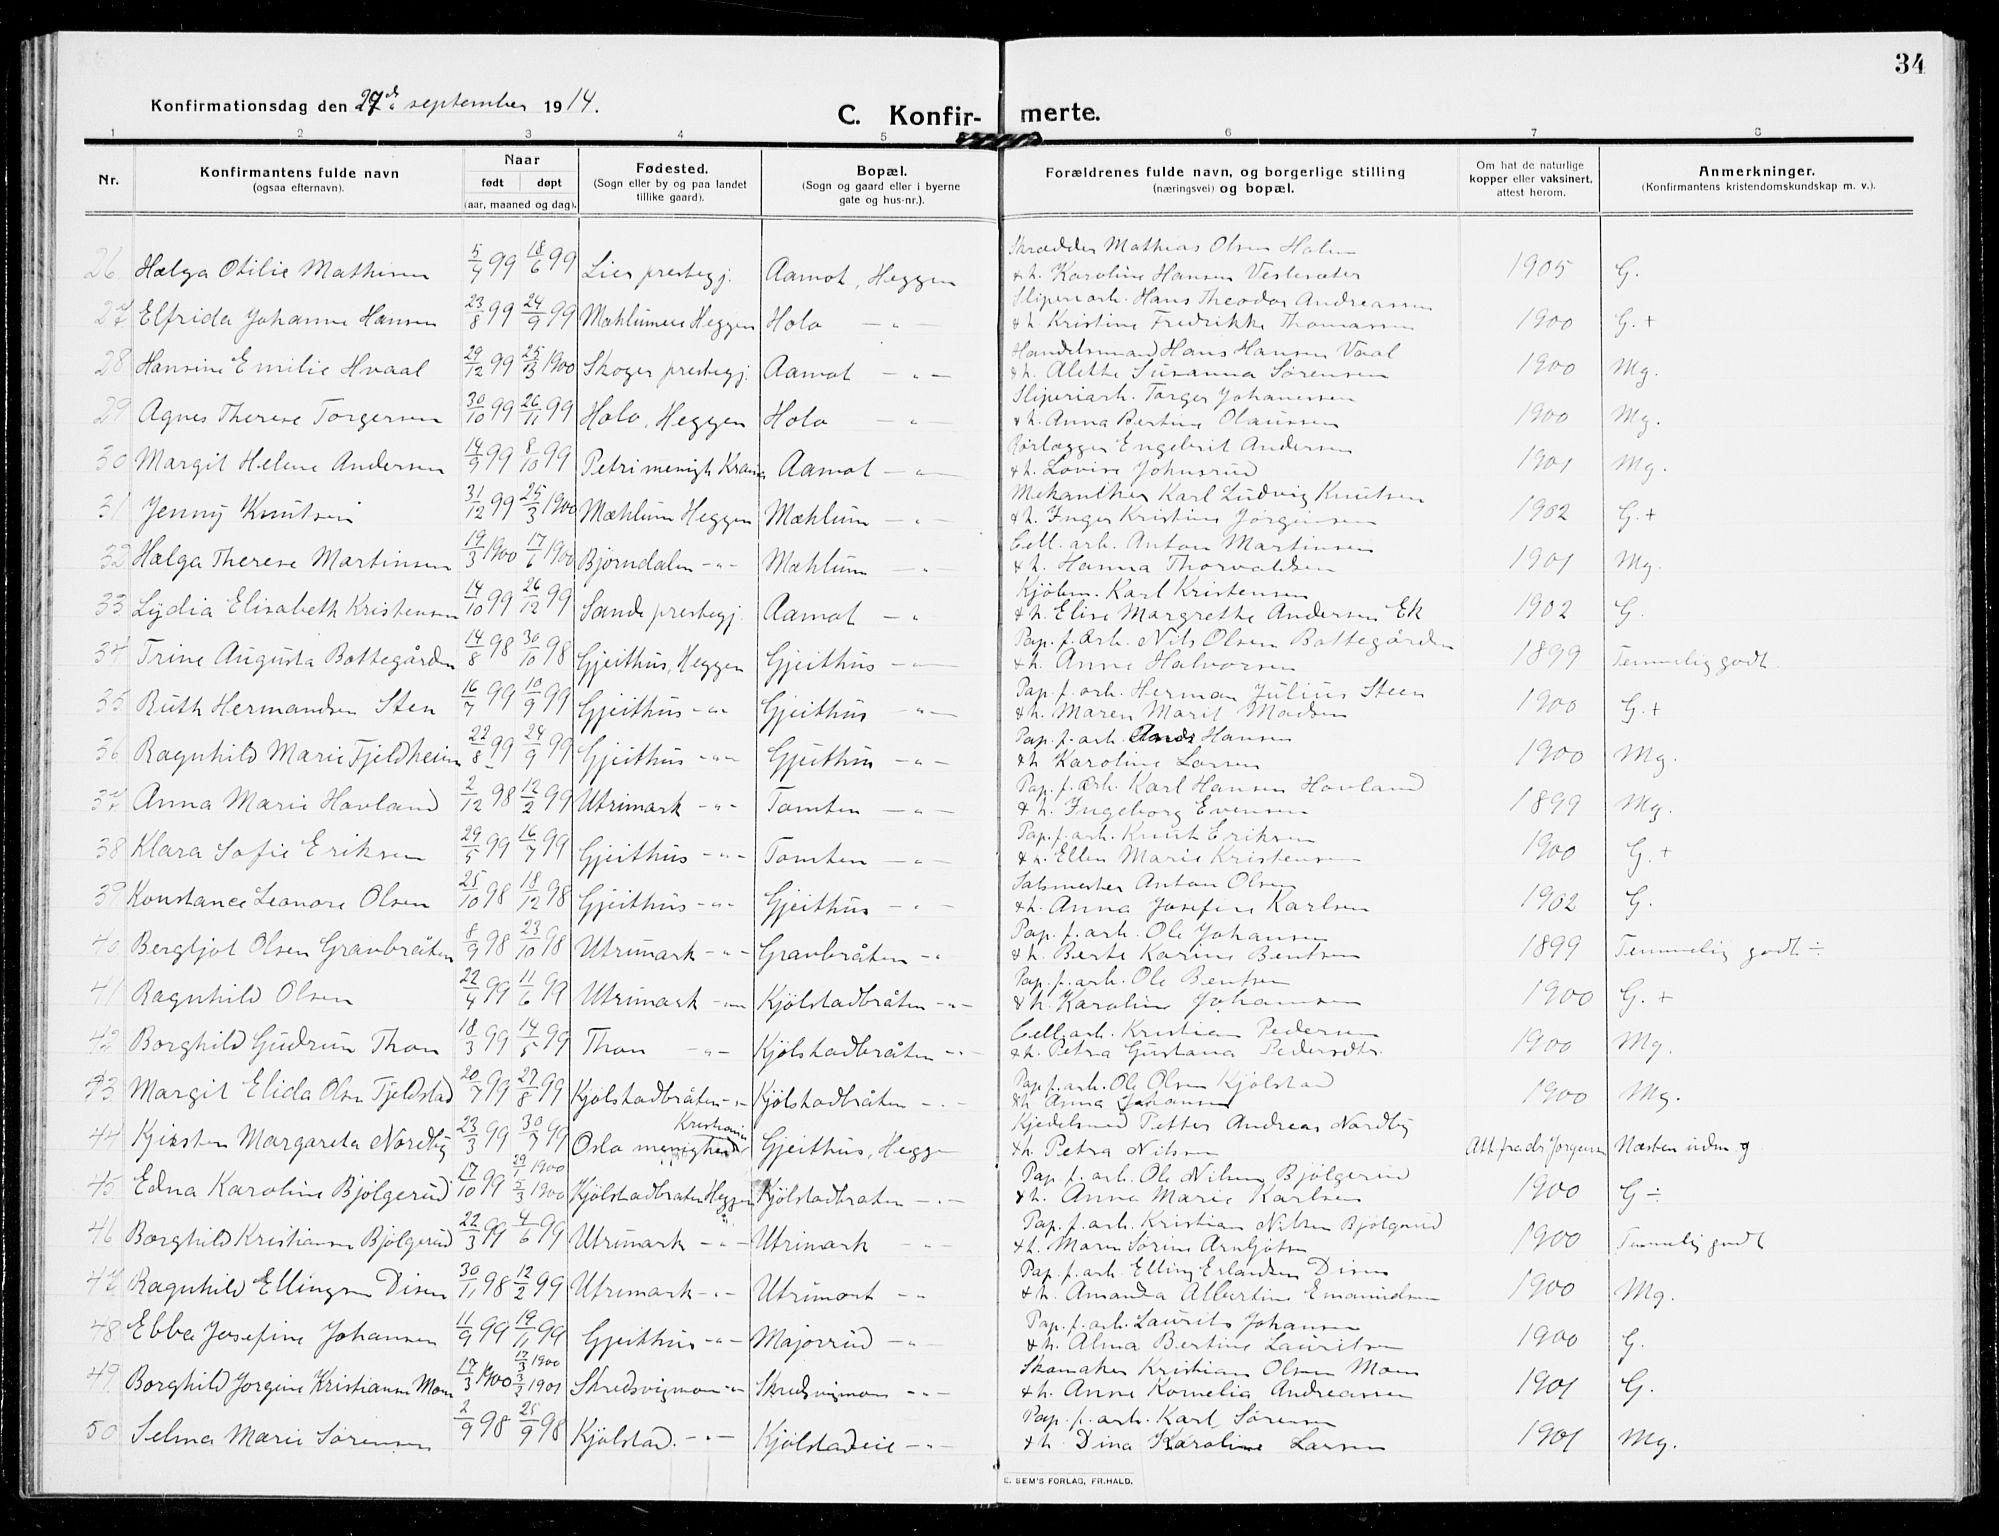 34
Konfirmationsdag den 27de september 1914.
C. Konfir- merte.
1 2 3 4 5 6 7 8
Nr.
Konfirmantens fulde navn
(ogsaa efternavn).
Naar
født døpt
(aar, maaned og dag).
Fødested.
(Sogn eller by og paa landet
tillike gaard).
Bopæl.
(Sogn og gaard eller i byerne
gate og hus-nr.).
Forældrenes fulde navn, og borgerlige stilling
(næringsvei) og bopæl.
Om hat de naturlige
kopper eller vaksinert,
attest herom.
Anmerkninger.
(Konfirmantens kristendomskundskap m. v.).
Skrædder Mathias Olsen Holm
26 Hælga Otilie Mathisen 5/4 99 18/6 99 Lier prestegj. Aamot, Heggen & h. Karoline Hansen Vestsæter 1905 G.
Sliperiarb. Hans Theodor Andreassen
27 Elfrida Johanne Hansen 23/8 99 24/9 99 Mæhlumeie Heggen Holo - " - & h. Kristine Fredrikke Thomassen 1900 G. +
Handelsmand Hans Hansen Vaal
28 Hansine Emilie Hvaal 29/12 99 25/3 1900 Skoger prestegj. Aamot - " - & h. Alette Susanna Sørensen 1900 Mg.
Sliperiarb. Torger Johanessen
29 Agnes Therese Torgersen 30/10 99 26/11 99 Holo, Heggen Holo - " - & h. Anna Bertine Olaussen 1900 Mg.
Rørlægger Engebrit Andersen
30 Margit Helene Andersen 14/9 99 8/10 99 Petri menigh Krania Aamot - " - & h. Lovise Johnsrud 1901 Mg.
Mekaniker Karl Ludvig Knutsen
31 Jenny Knutsen 31/12 99 25/3 1900 Mæhlum Heggen Mæhlum - " - & h. Inger Kristine Jørgensen 1902 G. +
Cell. arb. Anton Martinsen
32 Hælga Therese Martinsen 19/3 1900 17/6 1900 Bjørndalen - " - Mæhlum - " - & h. Hanna Thorvaldsen 1901 Mg.
Kjölem. Karl Kristensen
33 Lydia Elisabeth Kristensen 14/10 99 26/12 99 Sande prestegj. Aamot - " & h. Elise Margrethe Andersen Ek 1902 G.
Pap. f. arb. Nils Olsen Bottegården
34 Trine Augusta Bottegården 14/8 98 30/10 98 Gjeithus, Heggen Gjeithus - " - & h. Anne Halvorsen 1899 Temmelig godt.
Pap. f. arb. Herman Julius Steen
35 Ruth Hermandsen Sten 16/7 99 10/9 99 Gjeithus - " - Gjeithus - " - & h. Maren Marit Madsen 1900 G. +
Pap. f. arb. Hansen
36 Ragnhild Marie Fjeldheim 22/8 99 24/9 99 Gjeithus - " - Gjeithus - " - & h Karoline Larsen 1900 Mg.
Pap. f. arb. Karl Hansen Hovland
37 Anna Marie Hovland 2/12 98 12/2 99 Utrimark - " - Tomten - " - & h. Ingeborg Evensen 1899 Mg.
Pap. f. arb. Knut Eriksen
38 Klara Sofie Eriksen 29/5 99 16/7 99 Gjeithus - " - Tomten - " - & h. Ellen Marie Kristensen 1900 G. +
Salsmester Anton Olsen
39 Konstance Leonore Olsen 25/10 98 18/12 98 Gjeithus - " - Gjeithus - " - & h. Anna Josefine Karlsen 1902 G.
Pap. f. arb. Ole Johansen
40 Bergljot Olsen Gravbråten 8/9 98 23/10 98 Utrimark - " - Gravbråten - " & h. Berte Karine Bentsen 1899 Temmelig godt ÷
Pap. f. arb. Ole Bentsen
41 Ragnhild Olsen 22/4 99 11/6 99 Utrimark - " - Kjölstadbråten - " - & h. Karoline Johansen 1900 G. +
Cell. arb. Kristian Pedersen
42 Borghild Gudrun Thon 18/3 99 14/5 99 Thon - " - Kjölstadbråten - " - & h. Petra Gustana Pedersdtr. 1900 Mg.
Pap. f. arb. Ole Olsen Kjölstad
43 Margit Elida Olsen Fjeldstad 20/7 99 27/8 99 Kjölstadbråten - " - Kjölstadbråten - " - & h. Anna Johansen 1900 Mg.
Kristiania Kjedelsmed Petter Andreas Nordby
44 Kjirsten Margareta Nordby 23/3 99 30/7 99 Oslo menighed Gjeithus, Heggen & h. Petra Nilsen Att. fra dr. Jørgensen Næsten udm. g
29/1 1900 Pap. f. arb. Ole Nilsen Bjølgerud
45 Edna Karoline Bjølgerud 17/10 99 5/3 1900 Kjölstadbråten Heggen Kjölstadbråten - " - & h. Anna Marie Karlsen 1900 G ÷
Pap. f. arb. Kristian Nilsen Bjølgerud
46 Borghild Kristiansen Bjølgerud 22/3 99 4/6 99 Utrimark - " - Utrimark - " & h. Maren Sørine Arnljotsen 1900 Temmelig godt
Pap. f. arb. Elling Erlandsen Disen
47 Ragnhild Ellingsen Disen 30/11 98 12/2 99 Utrimark - " - Utrimark - " & h. Amanda Albertine Emanuelsen 1900 Mg.
Pap. f. arb. Laurits Johansen
48 Ebba Josefine Johansen 11/9 99 19/11 99 Gjeithus - " - Majorrud - " & h. Alma Bertine Lauritsen 1900 G.
Skomaker Kristian Olsen Moen
49 Borghild Jorgine Kristiansen Moen 17/3 1900 Skredsvigmoen - " - Skredsvigmoen - " - & h. Anne Kornelia Andreassen 1901 G.
Pap. f. arb. Karl Sørensen
50 Selma Marie Sørensen 2/9 98 25/9 98 Kjölstad. - " - Kjölstadeie - " - & h. Dina Karoline Larsen 1901 Mg.
E. SEM'S FORLAG, FR.HALD.